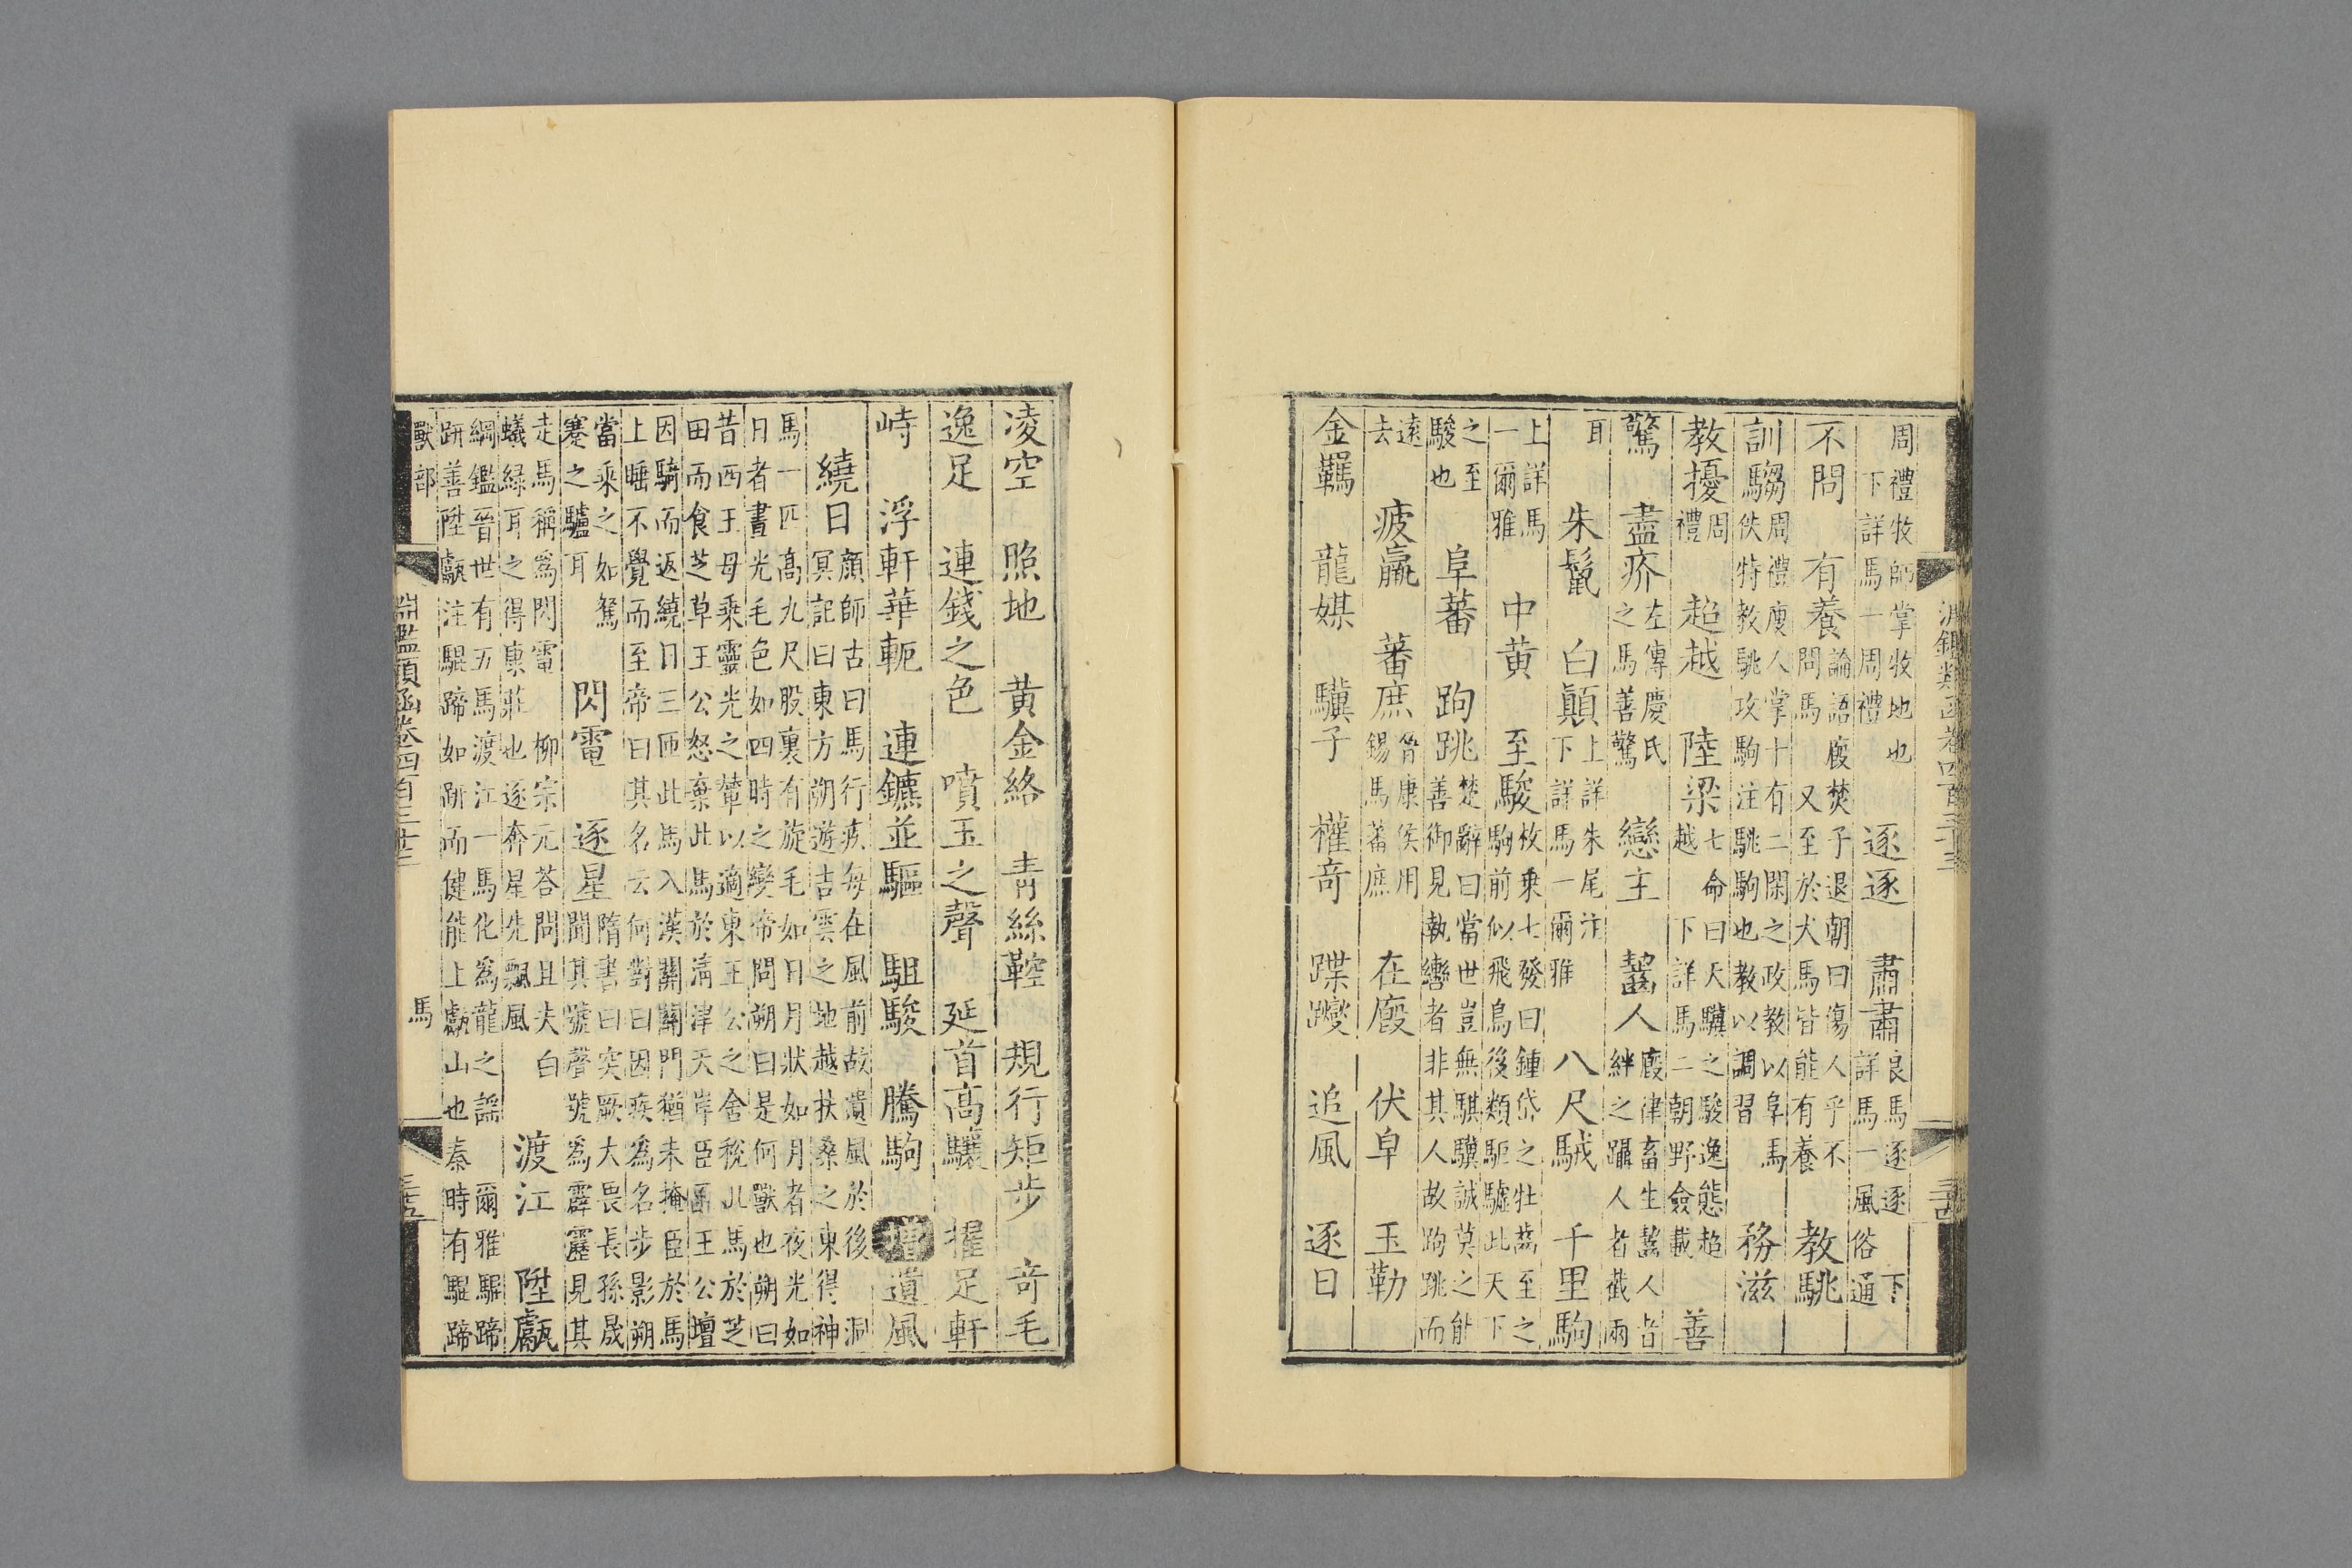 周禮牧師掌牧地也
下詳馬一周禮
逐逐
肅肅
良馬逐逐
詳馬一風俗通
下
不問
有養
論語廄焚子退朝曰傷人乎不
問馬又至於犬馬皆能有養
教駣
訓騶
周禮廋人掌十有二閑之政教以阜馬
佚特教駣攻駒注駣駒也教以調習
務滋
教擾
周
禮
超越
陸梁
七命曰天驥之駿逸態超
越下詳馬二朝野僉載
善
驚
盡疥
左傳慶氏
之馬善驚
戀主
齧人
廄律畜生齧人者
絆之躡人者截兩
耳
朱鬣
白顛
上詳朱尾注
下詳馬一爾雅
八尺駥
千里駒
上詳馬
一爾雅
中黄
至駿
枚乗七發曰鍾岱之牡齒至之
駒前似飛鳥後類駏驉此天下
之至
駿也
阜蕃
跔跳
楚辭曰當世豈無騏驥誠莫之能
善御見執轡者非其人故跔跳而
遠
去
疲羸
蕃庶
晉康侯用
錫馬蕃庶
在廄
伏皁
玉勒
金羈
龍媒
驥子
權竒
蹀躞
追風
逐日
淵鑑類函卷四百三十三
三十四
凌空
照地
黄金絡
青絲鞚
規行矩步
竒毛
逸足
連錢之色
噴玉之聲
延首高驤
擢足軒
峙
浮軒華軛
連鑣並驅
駔駿
騰駒
增
遺風
顔師古曰馬行疾每在風前故遺風於後
繞日
洞
冥記曰東方朔遊吉雲之地越扶桑之東得神
馬一匹高九尺股裏有旋毛如日月狀如月者夜光如
日者晝光毛色如四時之變帝問朔曰是何獸也朔曰
昔西王母乘靈光之輦以適東王公之舍稅此馬於芝
田而食芝草王公怒棄此馬於清津天岸臣至王公壇
因騎而返繞日三匝此馬入漢關關門猶未掩臣於馬
上睡不覺而至帝曰其名云何對曰因疾為名步影朔
當乘之如駑
蹇之驢耳
閃電
逐星
隋書曰突厥大畏長孫晟
聞其號聲號為霹靂見其
走馬稱為閃電
柳宗元荅問且夫白
蟻緑耳之得康莊也逐奔星先飄風
渡江
陞甗
綱鑑晉世有五馬渡江一馬化為龍之謡
爾雅騉蹄
趼善陞甗注騉蹄如趼而健能上甗山也秦時有騉蹄
獸部
馬
淵鑑類函卷四百三十三
三十五